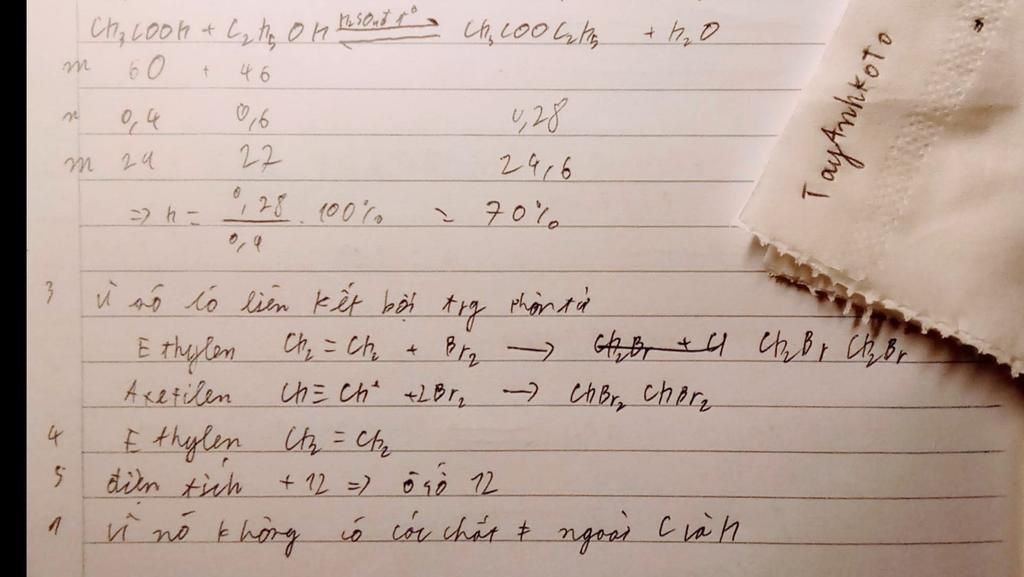 CH3COOH + C2H5OH H2SO4đ t° ⇌ CH3COOC2H5 + H2O
m 60 + 46
n 0,4 0,6 0,28
m 24 27 24,6
=> h = 0,28/0,4 . 100% = 70%
3 vì nó có liên kết bội trg phân tử
Ethylen CH2 = CH2 + Br2 → CH2Br + Cl CH2Br CH2Br
Axetilen CH ≡ CH + 2Br2 → CHBr2 CHBr2
4 Ethylen CH2 = CH2
5 điện tích +12 => ô số 12
1 vì nó không có các chất ≠ ngoài C và H
TayAnhKoTo